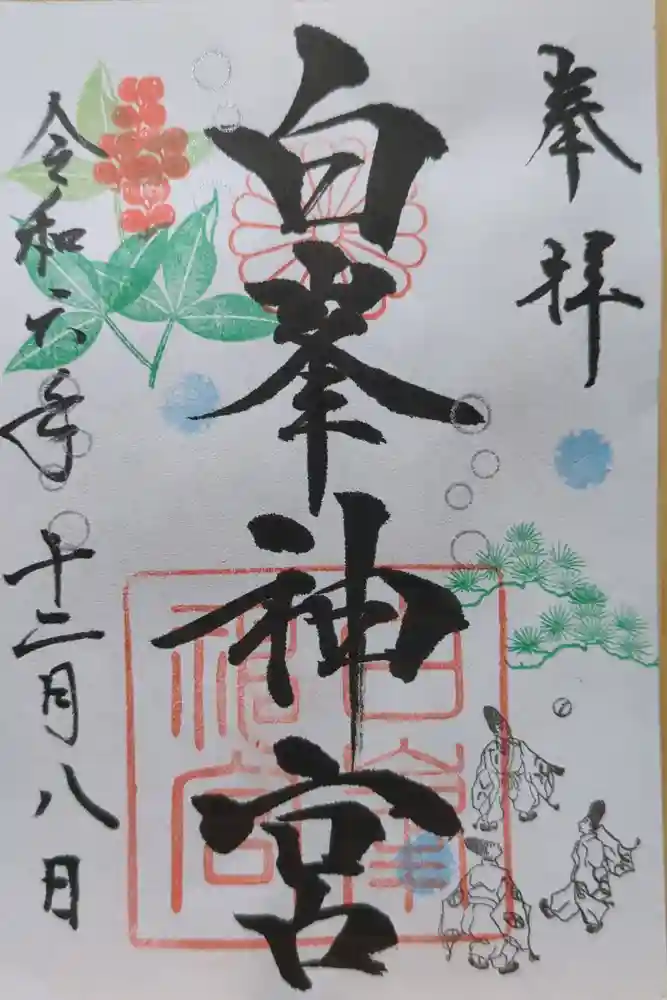 奉拝
白峯神宮
白峯神宮
令和六年十二月八日